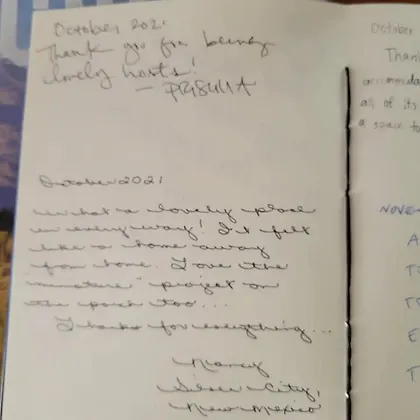 October 2021
Thank you for being
lovely hosts!
October 2021
What a lovely place
in every way! It felt
like a home away
from home. Love the
project on
the porch too...
Thanks for everything...
Nancy
Silver City,
New Mexico
October
Than
accommoda
all of its
a space to
NOVE
A
T
T
E
T